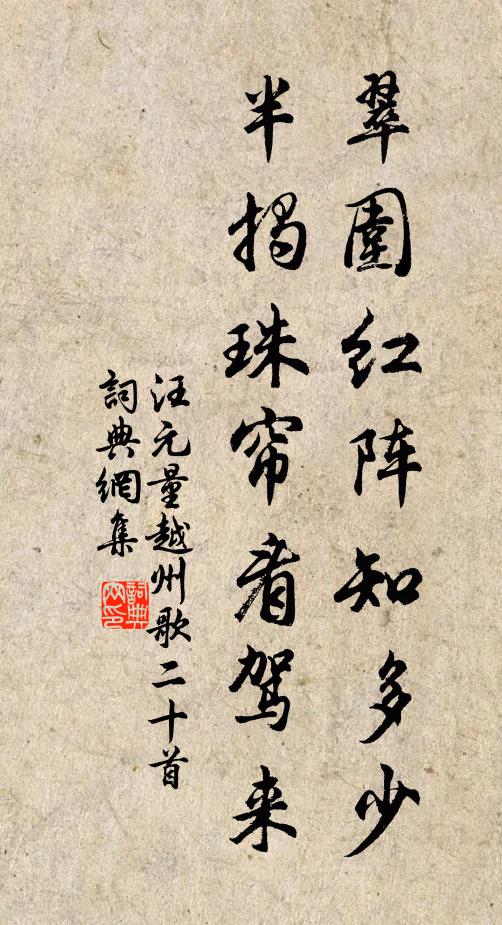 翠圍红阵知多少
半揭珠帘看驾来
汪元量越州歌二十首
詞典網集
詞典
网印